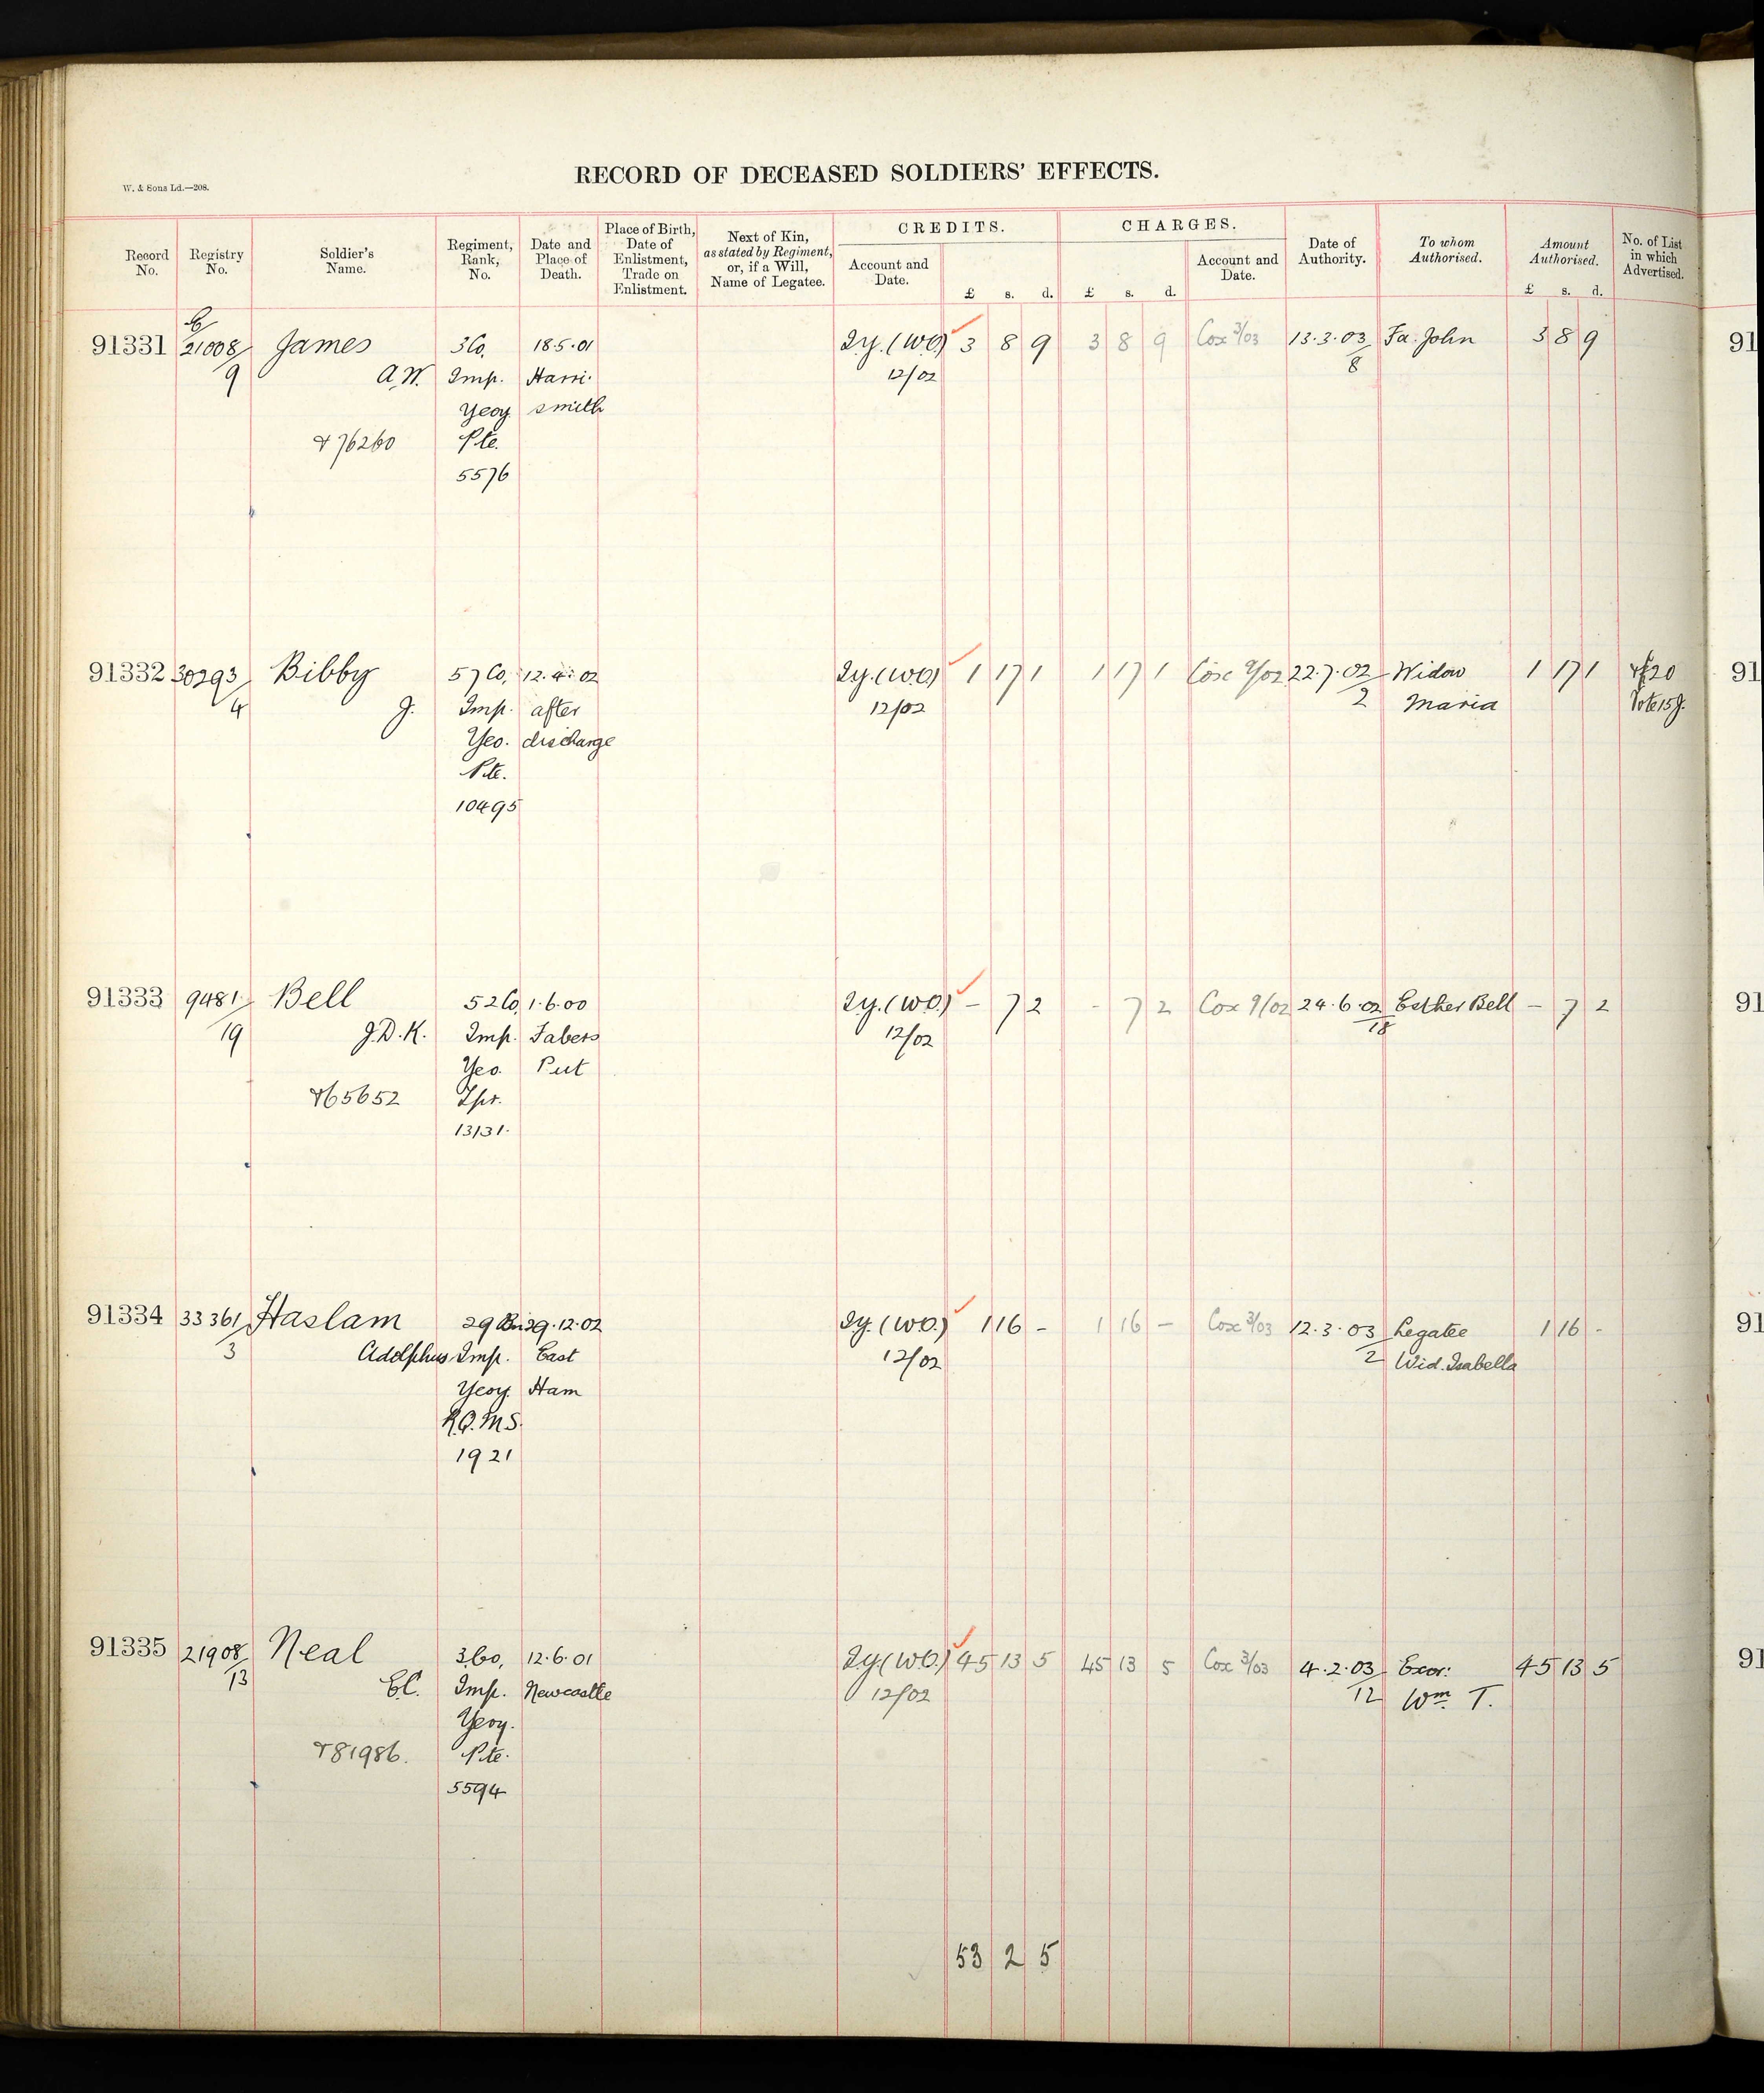 RECORD OF DECEASED SOLDIERS' EFFECTS.
W. & Sons Ld.—208.
Record No.
Registry No.
Soldier's Name.
Regiment, Rank, No.
Date and Place of Death.
Place of Birth, Date of Enlistment, Trade on Enlistment.
Next of Kin, as stated by Regiment, or, if a Will, Name of Legatee.
CREDITS.
Account and Date.
£ s. d.
CHARGES.
£ s. d.
Account and Date.
Date of Authority.
To whom Authorised.
Amount Authorised.
£ s. d.
No. of List in which Advertised.
91331 21008/ James 3 Co. 18.5.01 Iy. (W.O) 3 8 9 3 8 9 Cox 3/03 13.3.03 Fa. John 3 8 9 91
9 A.W. Imp. Harri- 12/02 8
Yeoy. smith
76260 Pte.
5576
91332 30293/ Bibby 57 Co. 12.4.02 Iy. (W.O) 1 17 1 1 17 1 Cox 9/02 22.7.02 Widow 1 17 1 £20 91
4 J. Imp. after 12/02 2 Maria Vote 15J.
Yeo. discharge
Pte.
10495
91333 9481/ Bell 52 Co. 1.6.00 Iy. (W.O.) - 7 2 - 7 2 Cox 9/02 24.6.02 Esther Bell - 7 2 91
19 J.D.K. Imp. Fabers 12/02 18
Yeo. Put
65652 Tpr.
13131.
91334 33361/ Haslam 29 Bn 29.12.02 Iy. (W.O.) 1 16 - 1 16 - Cox 3/03 12.3.03 Legatee 1 16 - 91
3 Adolphus Imp. East 12/02 2 Wid. Isabella
Yeoy. Ham
R.Q.M.S.
1921
91335 21908/ Neal 3 Co. 12.6.01 Iy. (W.O.) 45 13 5 45 13 5 Cox 3/03 4.2.03 Exor: 45 13 5 91
13 E.C. Imp. Newcastle 12/02 12 Wm. T.
Yeoy.
81986. Pte.
5594
53 2 5